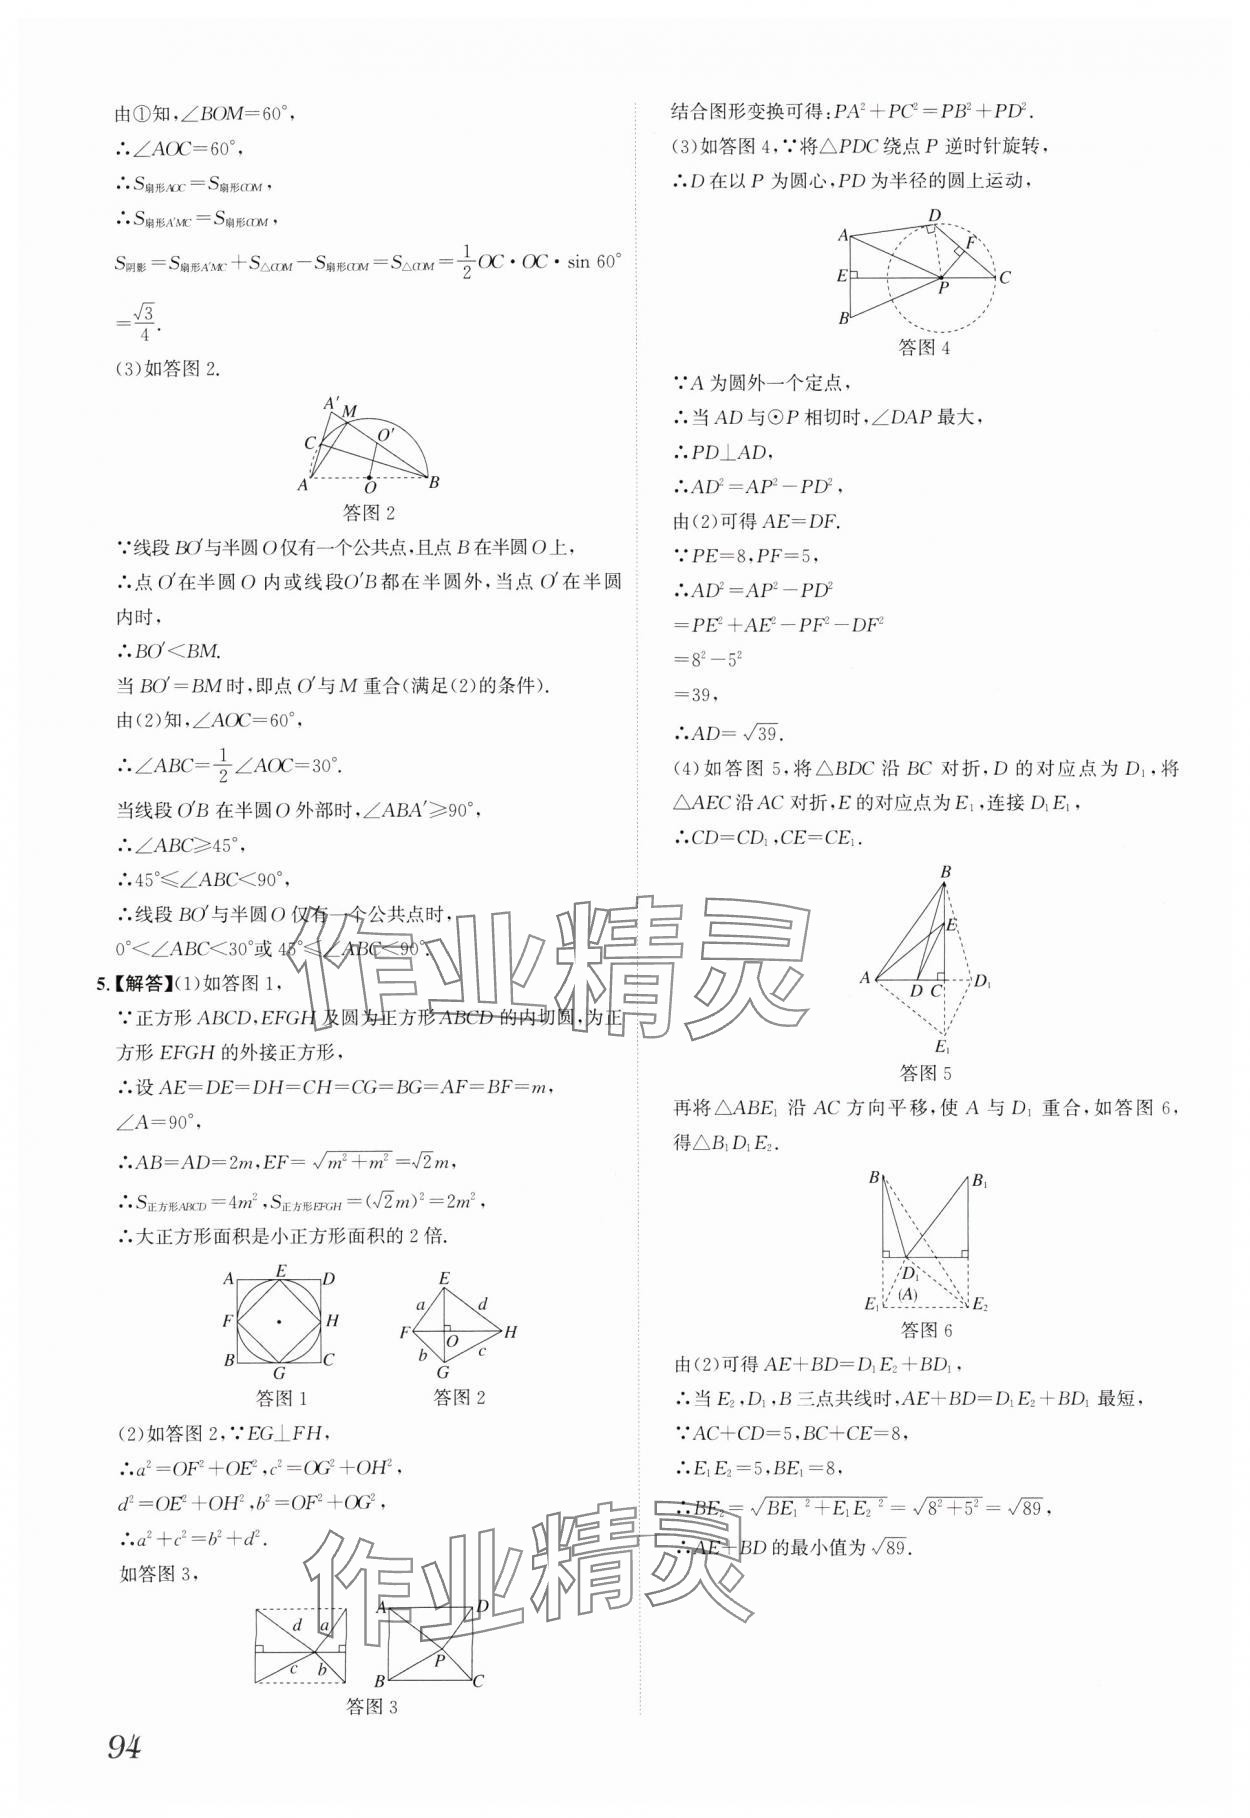 由①知,∠BOM=60°,
∴∠AOC=60°,
∴S扇形AOC=S扇形COM,
∴S扇形A′MC=S扇形COM,
S阴影=S扇形A′MC+S△COM−S扇形COM=S△COM=1/2OC·OC·sin 60°
=√3/4.
(3)如答图2.
A′
M
C
O′
A
O
B
答图2
∵线段BO′与半圆O仅有一个公共点,且点B在半圆O上,
∴点O′在半圆O内或线段O′B都在半圆外,当点O′在半圆
内时,
∴BO′<BM.
当BO′=BM时,即点O′与M重合(满足(2)的条件).
由(2)知,∠AOC=60°,
∴∠ABC=1/2∠AOC=30°.
当线段O′B在半圆O外部时,∠ABA′≥90°,
∴∠ABC≥45°,
∴45°≤∠ABC<90°,
∴线段BO′与半圆O仅有一个公共点时,
0°<∠ABC<30°或45°≤∠ABC<90°.
5.【解答】(1)如答图1,
∵正方形ABCD,EFGH及圆为正方形ABCD的内切圆,为正
方形EFGH的外接正方形,
∴设AE=DE=DH=CH=CG=BG=AF=BF=m,
∠A=90°,
∴AB=AD=2m,EF=√(m²+m²)=√2m,
∴S正方形ABCD=4m²,S正方形EFGH=(√2m)²=2m²,
∴大正方形面积是小正方形面积的2倍.
A E D
F H
B G C
答图1
E
a d
F O H
b c
G
答图2
(2)如答图2,∵EG⊥FH,
∴a²=OF²+OE²,c²=OG²+OH²,
d²=OE²+OH²,b²=OF²+OG²,
∴a²+c²=b²+d².
如答图3,
d a
c b
A D
P
B C
答图3
94
结合图形变换可得:PA²+PC²=PB²+PD².
(3)如答图4,∵将△PDC绕点P逆时针旋转,
∴D在以P为圆心,PD为半径的圆上运动,
D
A F
E P C
B
答图4
∵A为圆外一个定点,
∴当AD与⊙P相切时,∠DAP最大,
∴PD⊥AD,
∴AD²=AP²−PD²,
由(2)可得AE=DF.
∵PE=8,PF=5,
∴AD²=AP²−PD²
=PE²+AE²−PF²−DF²
=8²−5²
=39,
∴AD=√39.
(4)如答图5,将△BDC沿BC对折,D的对应点为D₁,将
△AEC沿AC对折,E的对应点为E₁,连接D₁E₁,
∴CD=CD₁,CE=CE₁.
B
E
A D C D₁
E₁
答图5
再将△ABE₁沿AC方向平移,使A与D₁重合,如答图6,
得△B₁D₁E₂.
B B₁
D₁
(A)
E₁ E₂
答图6
由(2)可得AE+BD=D₁E₂+BD₁,
∴当E₂,D₁,B三点共线时,AE+BD=D₁E₂+BD₁最短,
∵AC+CD=5,BC+CE=8,
∴E₁E₂=5,BE₁=8,
∴BE₂=√(BE₁²+E₁E₂²)=√(8²+5²)=√89,
∴AE+BD的最小值为√89.
作业精灵
作业精灵